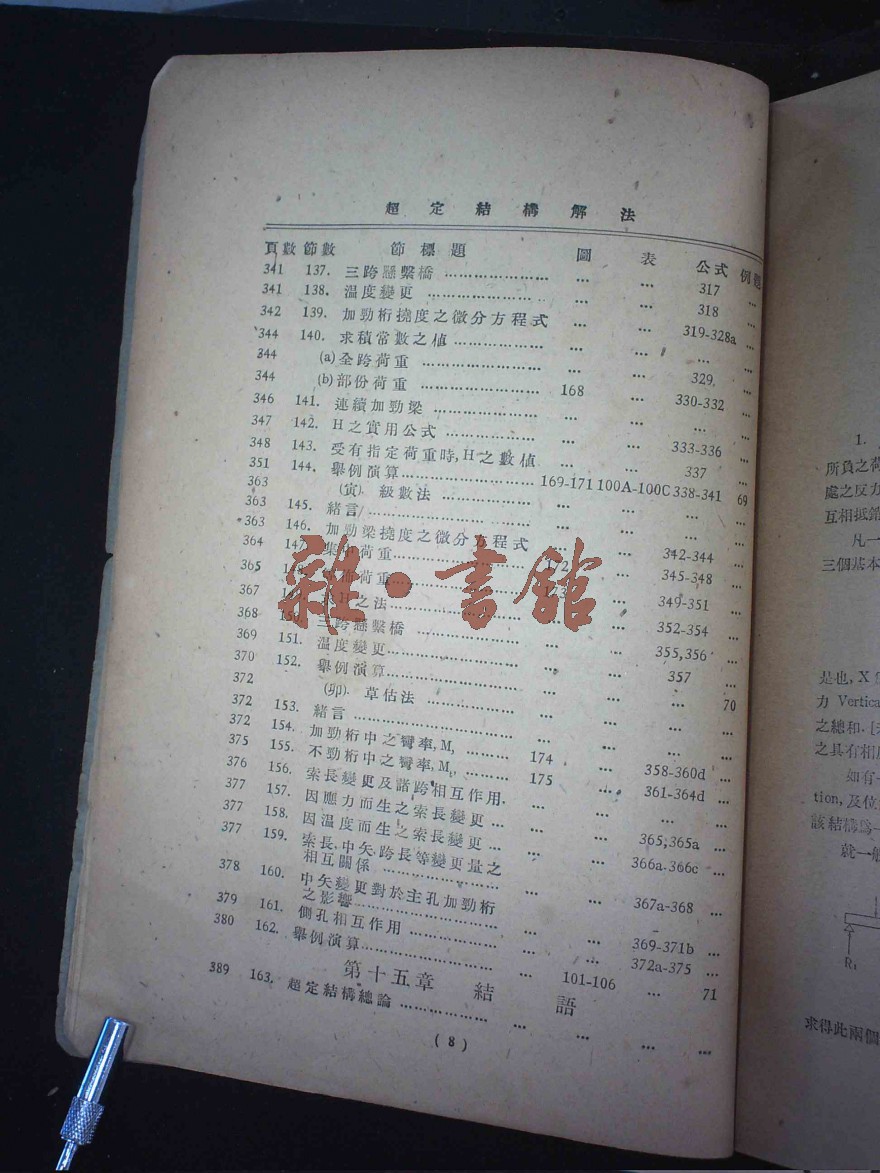 超定結構解法
頁數 節數 節標題 圖 表 公式 例題
341 137. 三跨懸繫橋 ........................ ... ... 317 ...
341 138. 溫度變更 ........................ ... ... 318 ...
342 139. 加勁桁撓度之微分方程式 ... ... 319-328a ...
344 140. 求積常數之値 ........................ ... ... ... ...
344 (a) 全跨荷重 ........................ ... ... 329, ...
344 (b) 部份荷重 ........................ 168 ... 330-332 ...
346 141. 連續加勁梁 ........................ ... ... ... ...
347 142. H之實用公式 ........................ ... ... 333-336 ...
348 143. 受有指定荷重時,H之數値 ... ... 337 ...
351 144. 舉例演算 ........................ 169-171 100A-100C 338-341 69
363 (寅). 級數法 ........................ ... ... ... ...
363 145. 緒言 ........................ ... ... ... ...
363 146. 加勁梁撓度之微分方程式 ... ... 342-344 ...
364 147. 集中荷重 ........................ ... 345-348 ...
365 荷重 ........................ ... 349-351 ...
367 H之法 ........................ ... ... 352-354 ...
368 150. 三跨懸繫橋 ........................ ... ... 355,356 ...
369 151. 溫度變更 ........................ ... ... 357 ...
370 152. 舉例演算 ........................ ... ... ... 70
372 (卯). 草估法 ........................ ... ... ... ...
372 153. 緒言 ........................ ... ... ... ...
372 154. 加勁桁中之彎率, ......... 174 ... 358-360d ...
375 155. 不勁桁中之彎率, ......... 175 ... 361-364d ...
376 156. 索長變更及諸跨相互作用. ... ... ... ...
377 157. 因應力而生之索長變更 ... ... ... 365,365a ...
377 158. 因溫度而生之索長變更 ... ... ... 366a.366c ...
377 159. 索長,中矢,跨長等變更量之
相互關係 ........................ ... ... 367a-368 ...
378 160. 中矢變更對於主孔加勁桁
之影響 ........................ ... ... 369-371b ...
379 161. 側孔相互作用 ........................ ... ... 372a-375 ...
380 162. 舉例演算 ........................ ... 101-106 ... 71
第十五章 結語
389 163. 超定結構總論 ........................ ... ... ... ...
(8)
雜·書館
1.
所負之荷
處之反力
互相抵銷
凡一
三個基本
是也, X
力 Vertica
之總和.
之具有相
如有
tion, 及位
該結構爲
就一般
R₁
求得此兩個